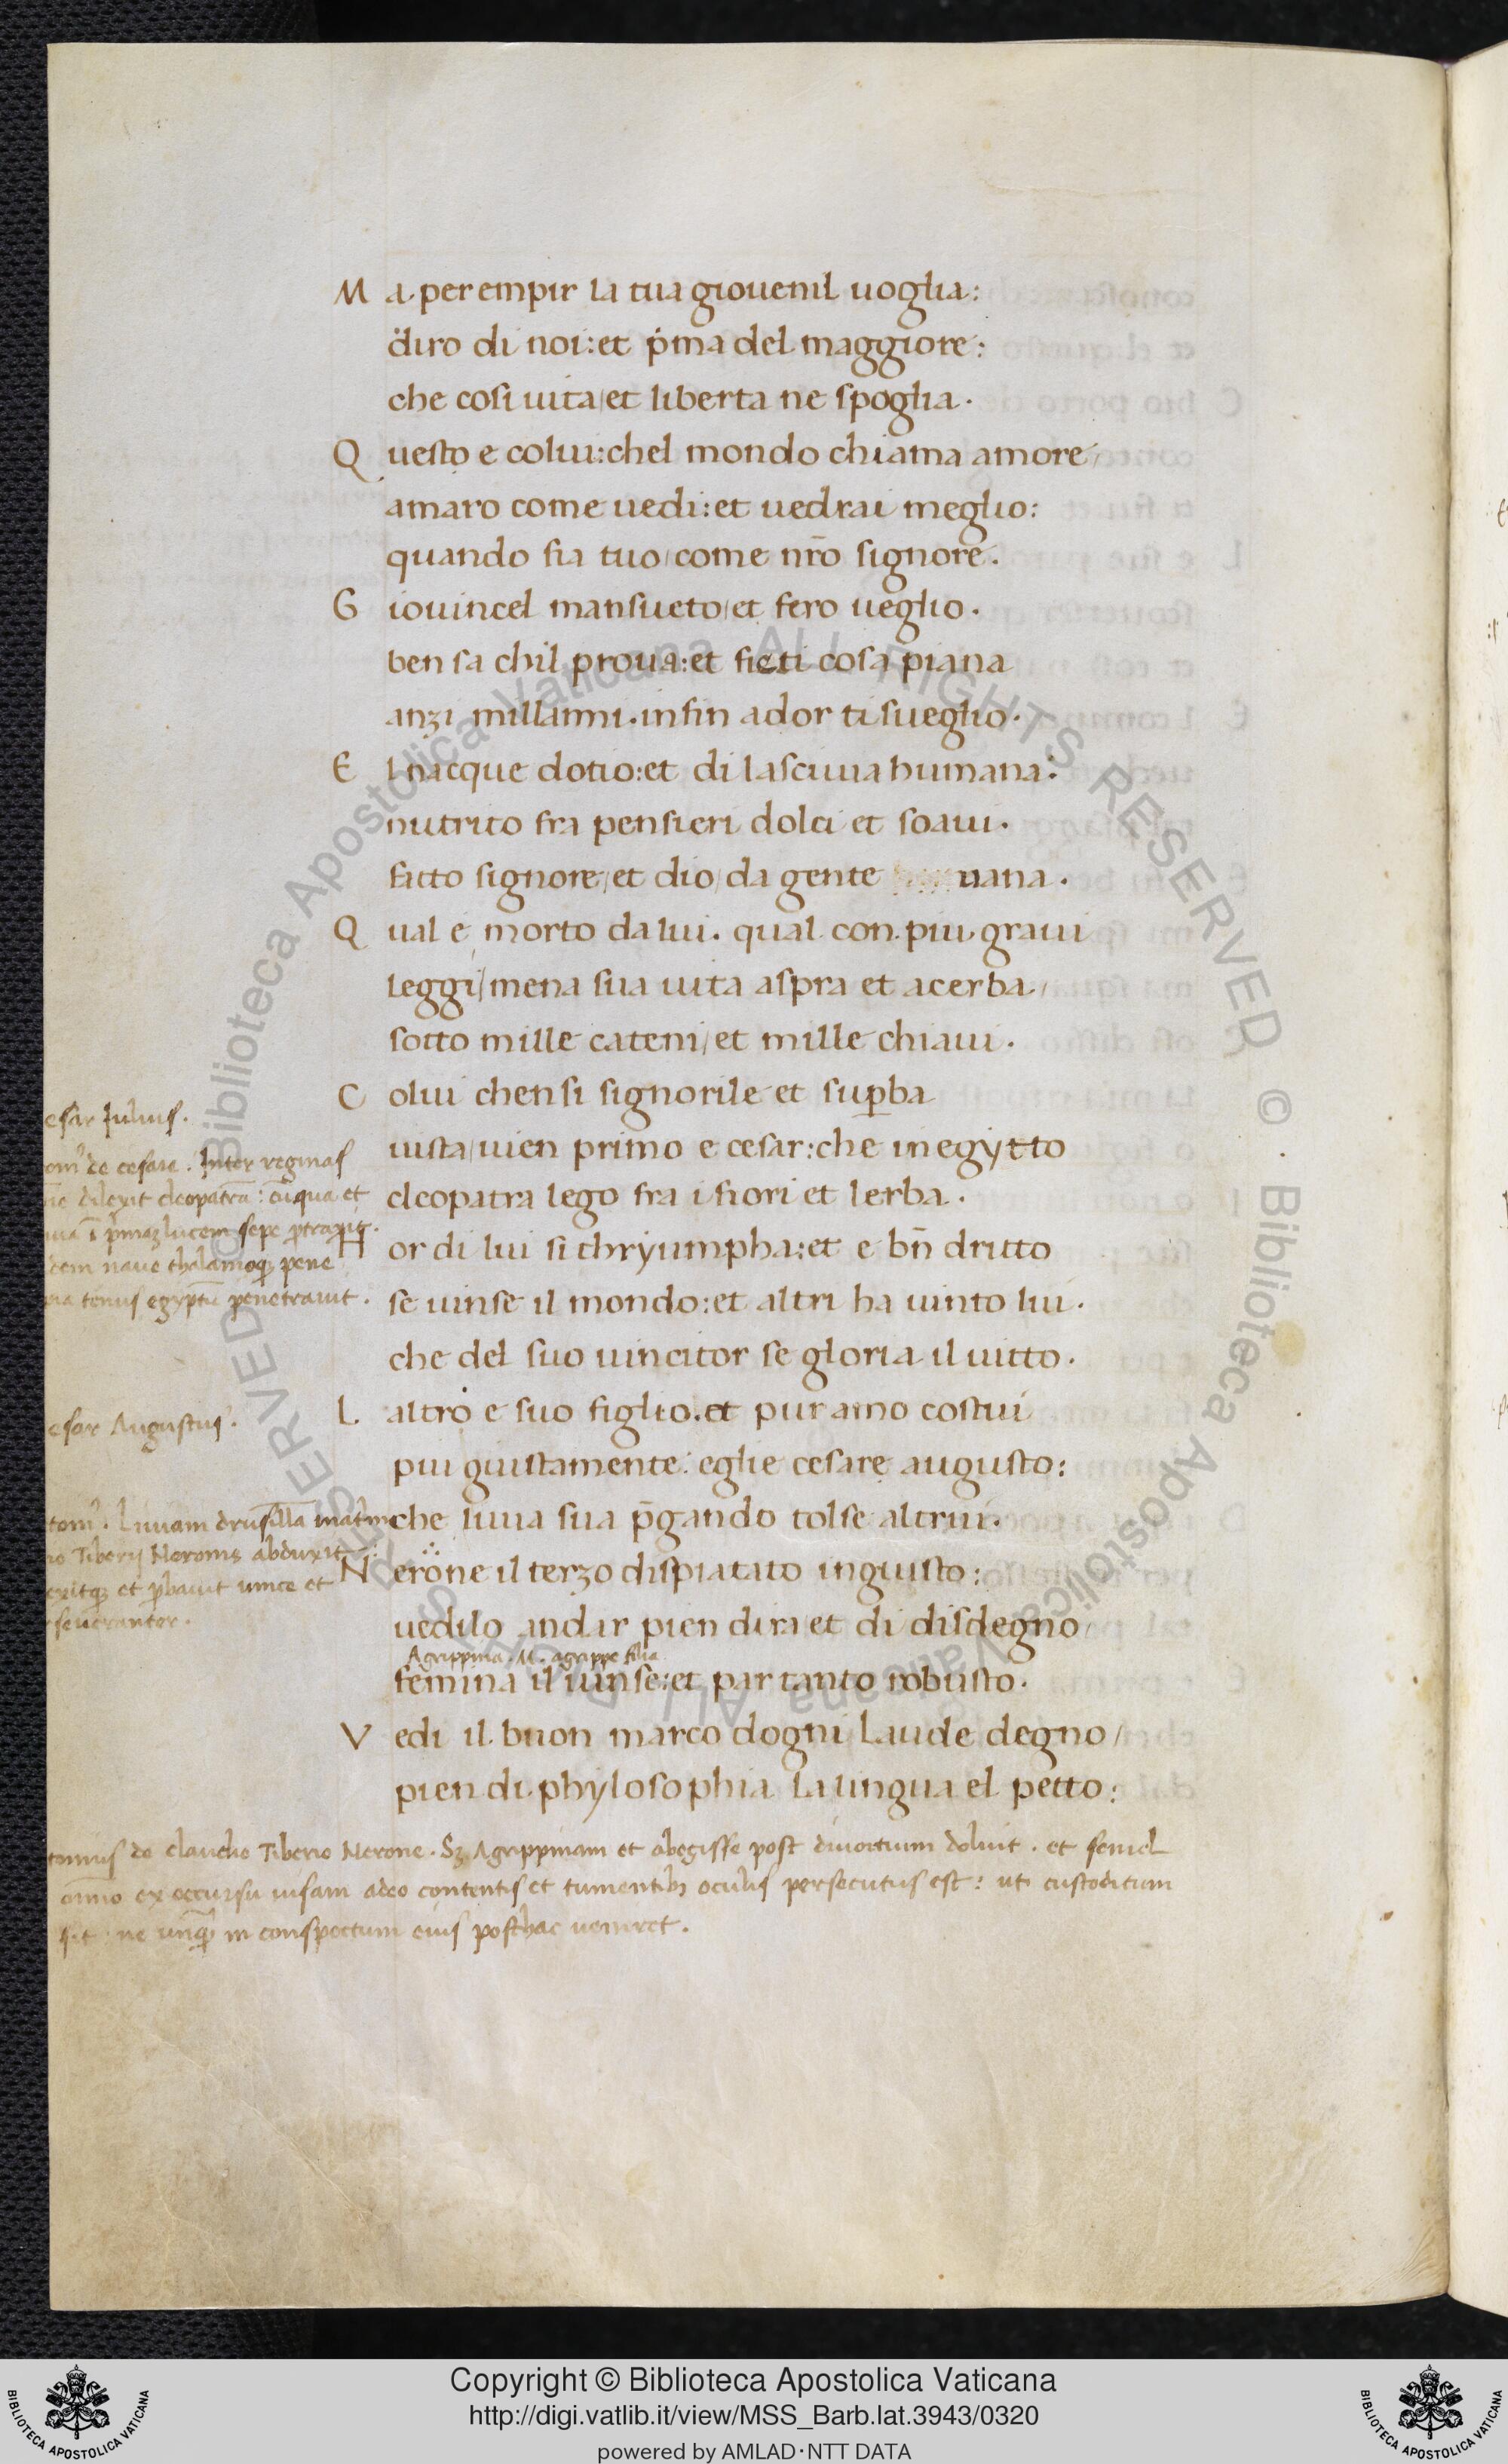 M a per empir la tua giouenil uoglia:
diro di noi: et p̄ma del maggiore:
che cosi uita/et liberta ne spoglia.
Q uesto e colui: chel mondo chiama amore/
amaro come uedi: et uedrai meglio:
quando sia tuo/come nr̄o signore.
G iouincel mansueto/et fero ueglio.
ben sa chil proua: et fieti cosa piana
anzi millanni. infin ador ti sueglio.
E l nacque dotio: et di lasciuia humana:
nutrito fra pensieri dolci et soaui.
fatto signore/et dio/da gente uana.
Q ual e morto da lui. qual con piu graui
leggi/mena sua uita aspra et acerba/
sotto mille cateni/et mille chiaui.
C olui chensi signorile et sup̄ba
uista/uien primo e cesar: che in egytto
cleopatra lego fra i fiori et lerba.
H or di lui si thryumpha: et e bn̄ dritto
se uinse il mondo: et altri ha uinto lui.
che del suo uincitor se gloria il uitto.
L altro e suo figlio. et pur amo costui
piu giustamente: eglie cesare augusto:
che liuia sua p̄gando tolse altrui.
N erone il terzo dispiatato ingiusto:
uedilo andar pien dira et di disdegno/
Agrippina. M. agrippe filia
femina il uinse: et par tanto robusto.
V edi il buon marco dogni laude degno/
pien di phylosophia la lingua el petto:
esar Iulius.
de cesare. Inter reginas
dilexit cleopatrā: cū qua et
ī prima lucem sepe p̄traxit.
dem naue thalamoq; pene
tenus egyptū penetrauit.
esar Augustus.
Liuiam drusillā matrim
Tiberij Neronis abduxit
exitq; et p̄bauit unice et
seueranter.
de claudio Tiberio Nerone. Sz Agrippinam et abegisse post diuortium doluit. et semel
omīno ex occursu uisam adeo contentis et tumentib; oculis persecutus est: uti custoditum
sit: ne unq̄ in conspectum eius posthac ueniret.
© Biblioteca Apostolica Vaticana ALL RIGHTS RESERVED © Biblioteca Apostolica Vaticana ALL RIGHTS RESERVED
Copyright © Biblioteca Apostolica Vaticana
http://digi.vatlib.it/view/MSS_Barb.lat.3943/0320
powered by AMLAD·NTT DATA
BIBLIOTECA APOSTOLICA VATICANA
BIBLIOTECA APOSTOLICA VATICANA